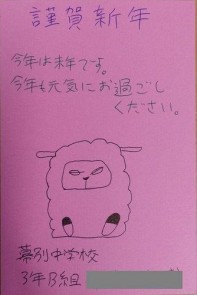 謹賀新年
今年は未年です。
今年も元気にお過ごし
ください。
幕別中学校
3年B組